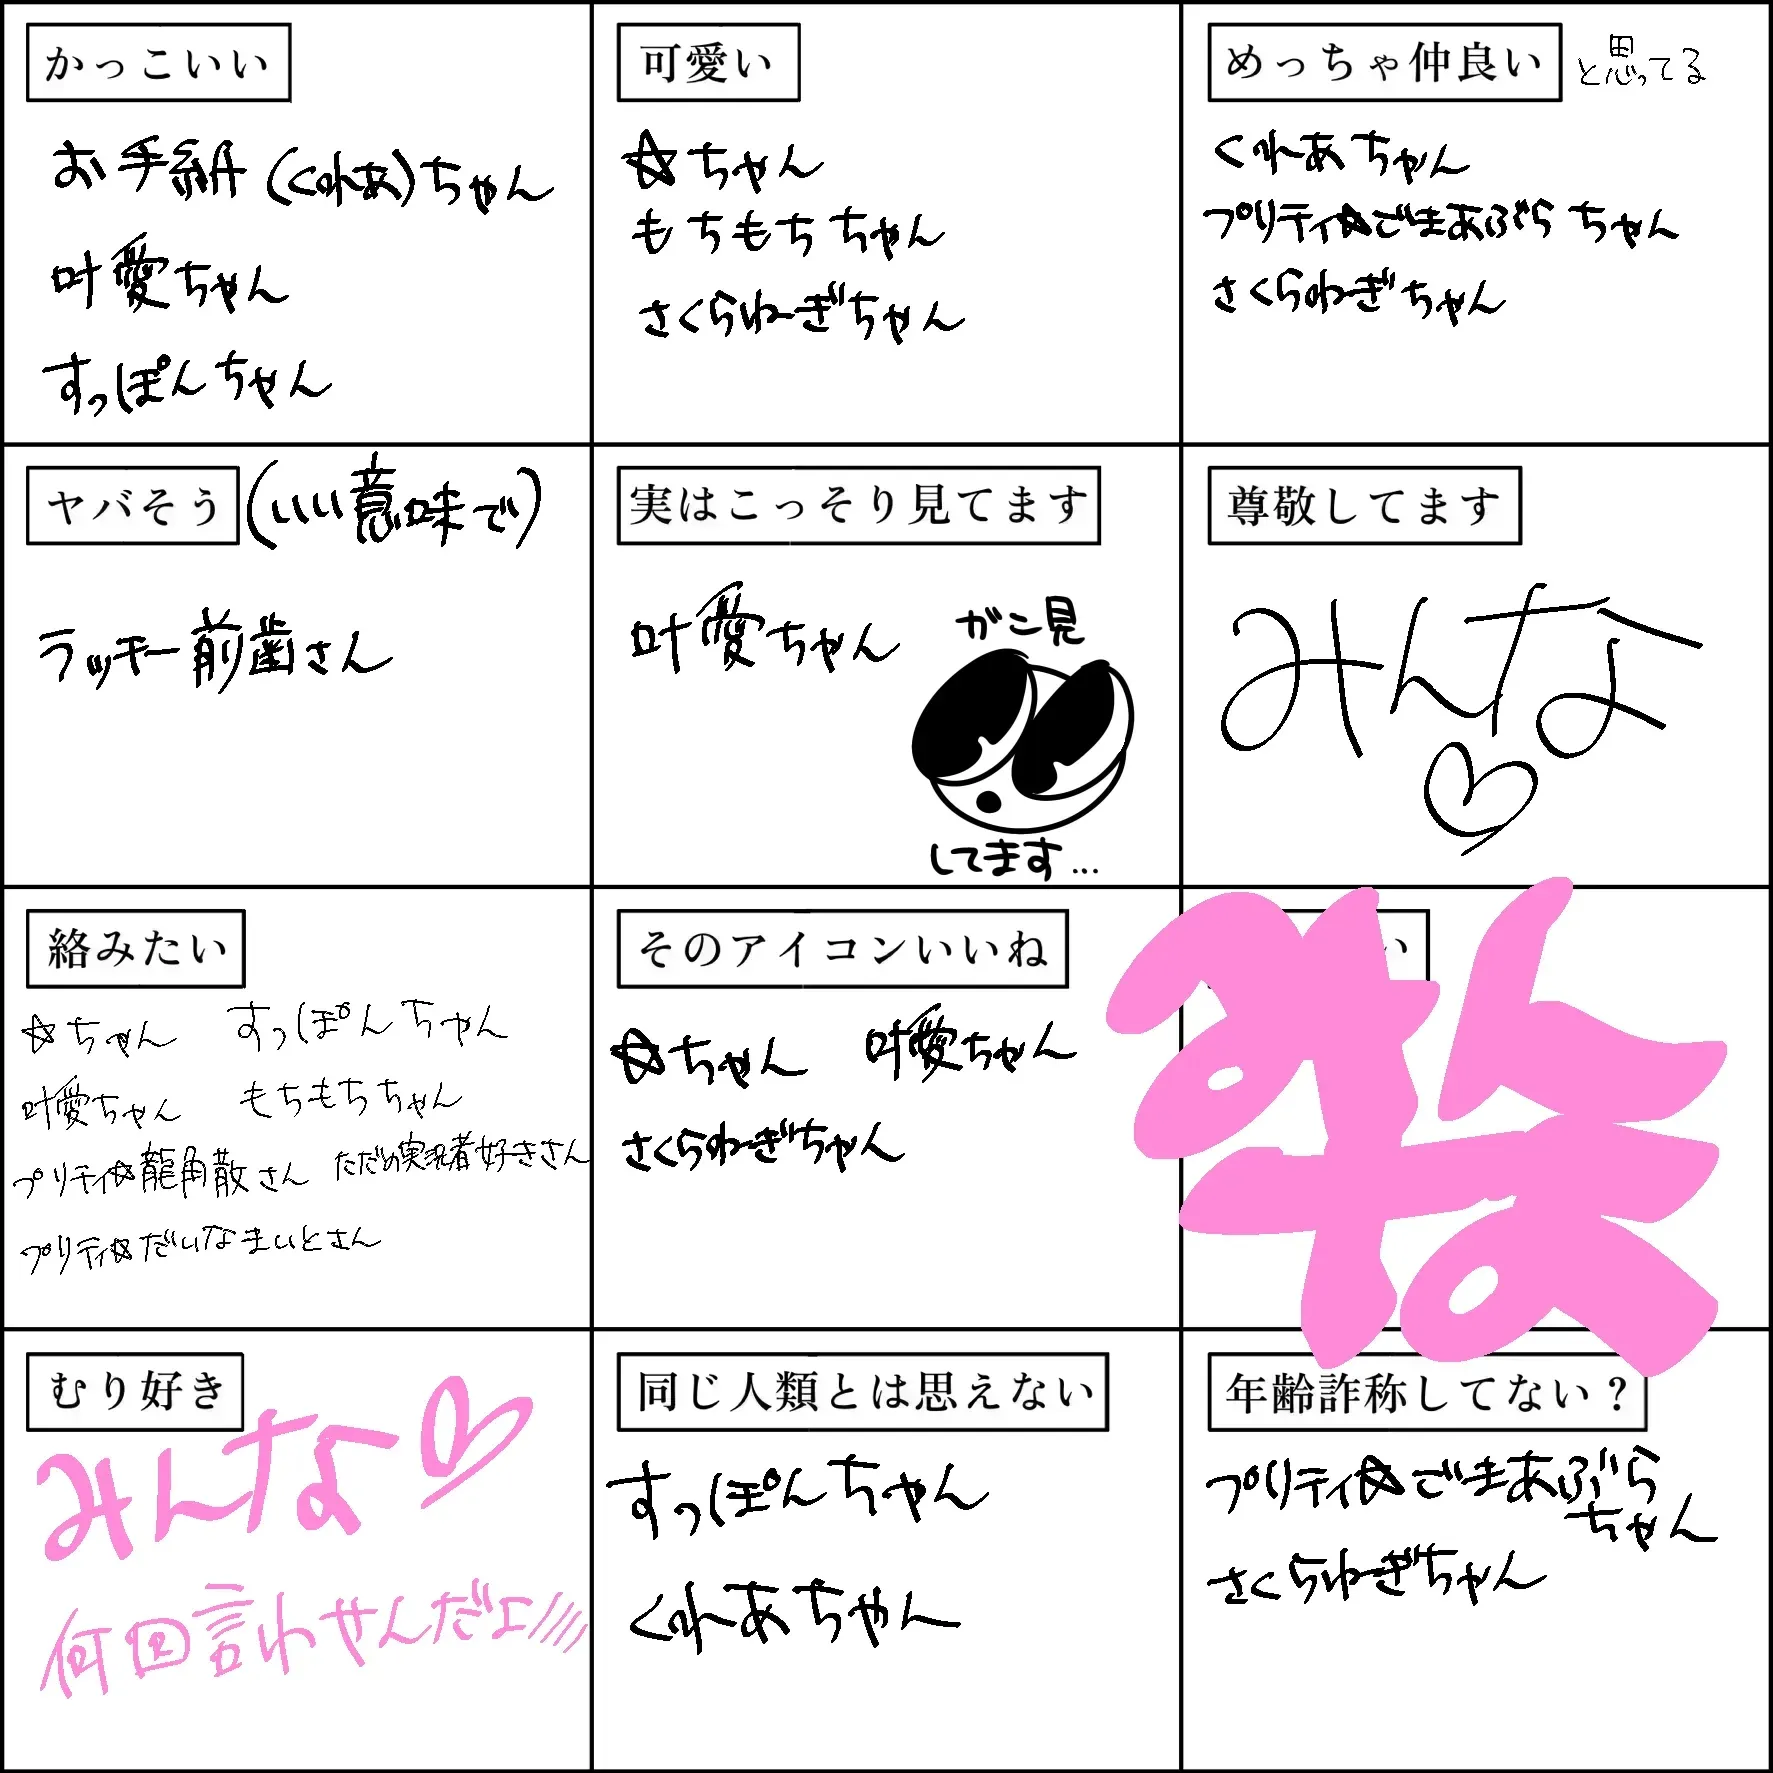 かっこいい
お手紙(くれあ)ちゃん
叶愛ちゃん
すっぽんちゃん
可愛い
☆ちゃん
もちもちちゃん
さくらねぎちゃん
めっちゃ仲良い と思ってる
くれあちゃん
プリティ☆ごまあぶらちゃん
さくらねぎちゃん
ヤバそう(いい意味で)
ラッキー前歯さん
実はこっそり見てます
叶愛ちゃん
ガン見
してます...
尊敬してます
みんな♡
絡みたい
☆ちゃん すっぽんちゃん
叶愛ちゃん もちもちちゃん
プリティ☆龍角散さん ただの実況者好きさん
プリティ☆だいなまいとさん
そのアイコンいいね
☆ちゃん 叶愛ちゃん
さくらねぎちゃん
い
みんな
むり好き
みんな♡
何回言わせんだよ////
同じ人類とは思えない
すっぽんちゃん
くれあちゃん
年齢詐称してない？
プリティ☆ごまあぶら
ちゃん
さくらねぎちゃん